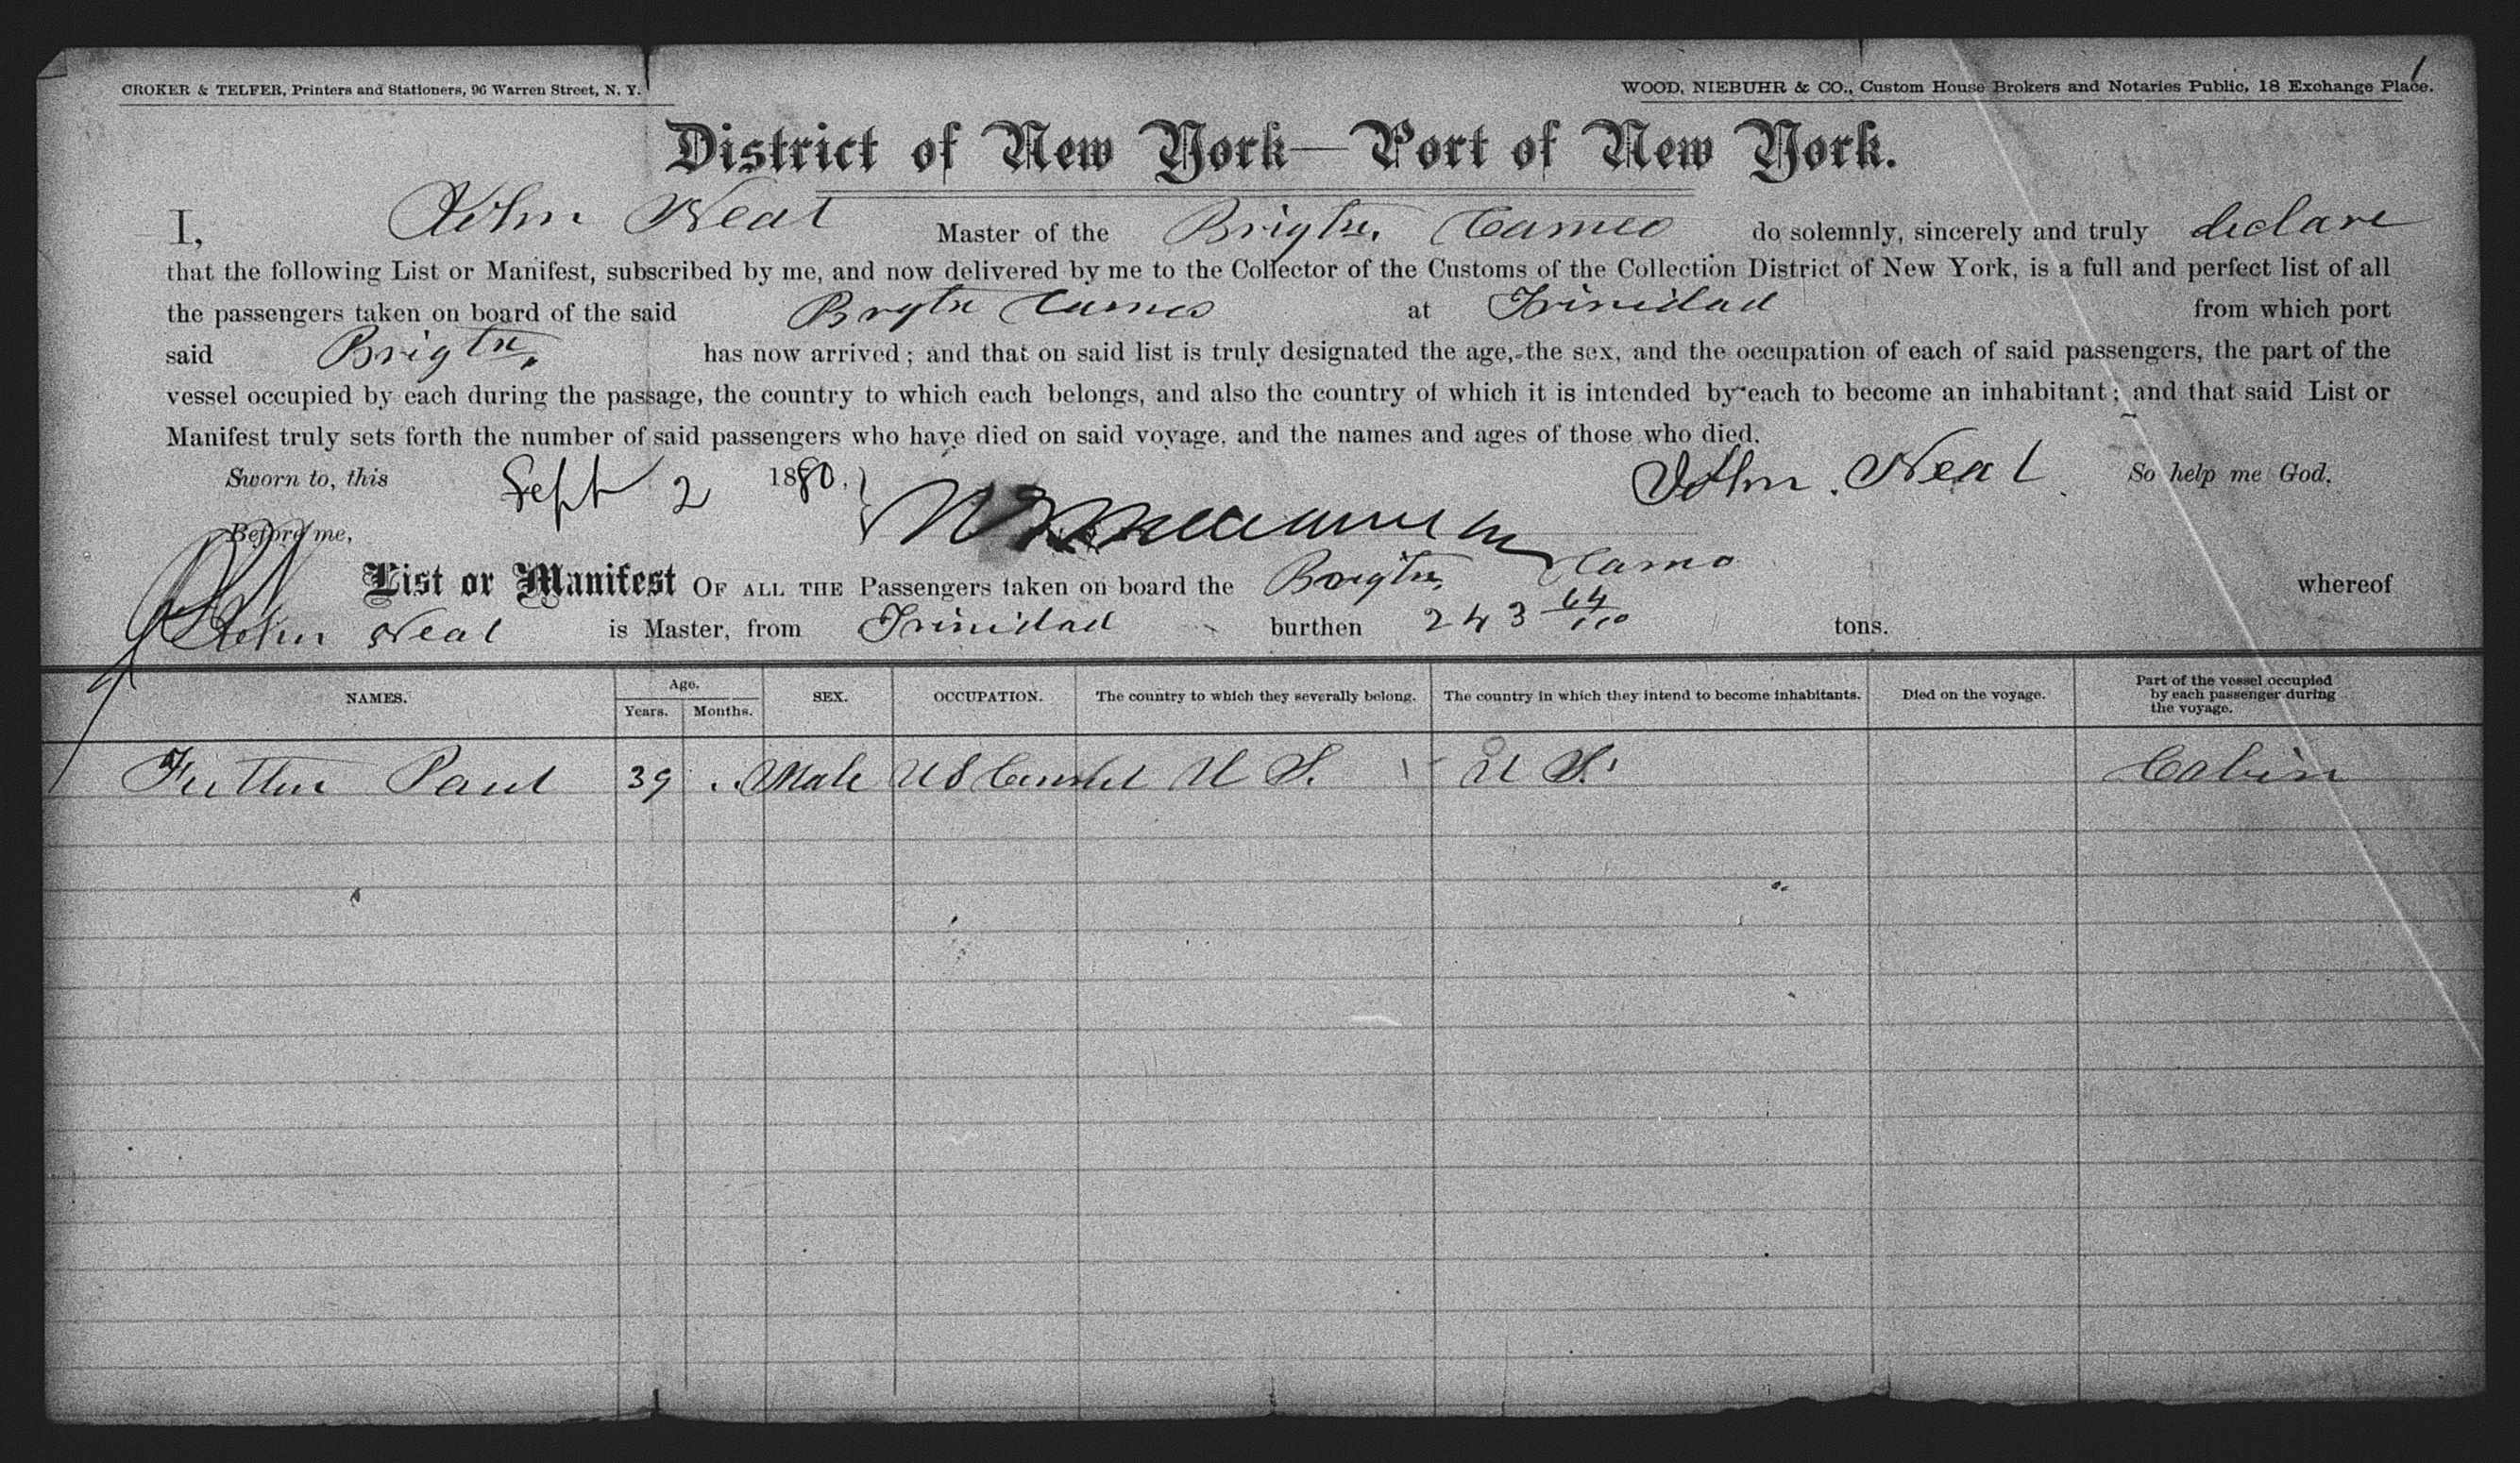 1
CROKER & TELFER, Printers and Stationers, 96 Warren Street, N. Y.
WOOD, NIEBUHR & CO., Custom House Brokers and Notaries Public, 18 Exchange Place.
District of New York—Port of New York.
I, John Neal Master of the Brigtn. Cameo do solemnly, sincerely and truly declare
that the following List or Manifest, subscribed by me, and now delivered by me to the Collector of the Customs of the Collection District of New York, is a full and perfect list of all
the passengers taken on board of the said Brgtn Cameo at Trinidad from which port
said Brigtn. has now arrived; and that on said list is truly designated the age, the sex, and the occupation of each of said passengers, the part of the
vessel occupied by each during the passage, the country to which each belongs, and also the country of which it is intended by each to become an inhabitant; and that said List or
Manifest truly sets forth the number of said passengers who have died on said voyage, and the names and ages of those who died.
Sworn to, this Sept 2 1880. John Neal So help me God.
Before me,
List or Manifest OF ALL THE Passengers taken on board the Brigtn. Cameo whereof
John Neal is Master, from Trinidad burthen 243 64/100 tons.
NAMES. Age. Years. Months. SEX. OCCUPATION. The country to which they severally belong. The country in which they intend to become inhabitants. Died on the voyage. Part of the vessel occupied by each passenger during the voyage.
Paul 39 Male U S Consul U S. U S. Cabin